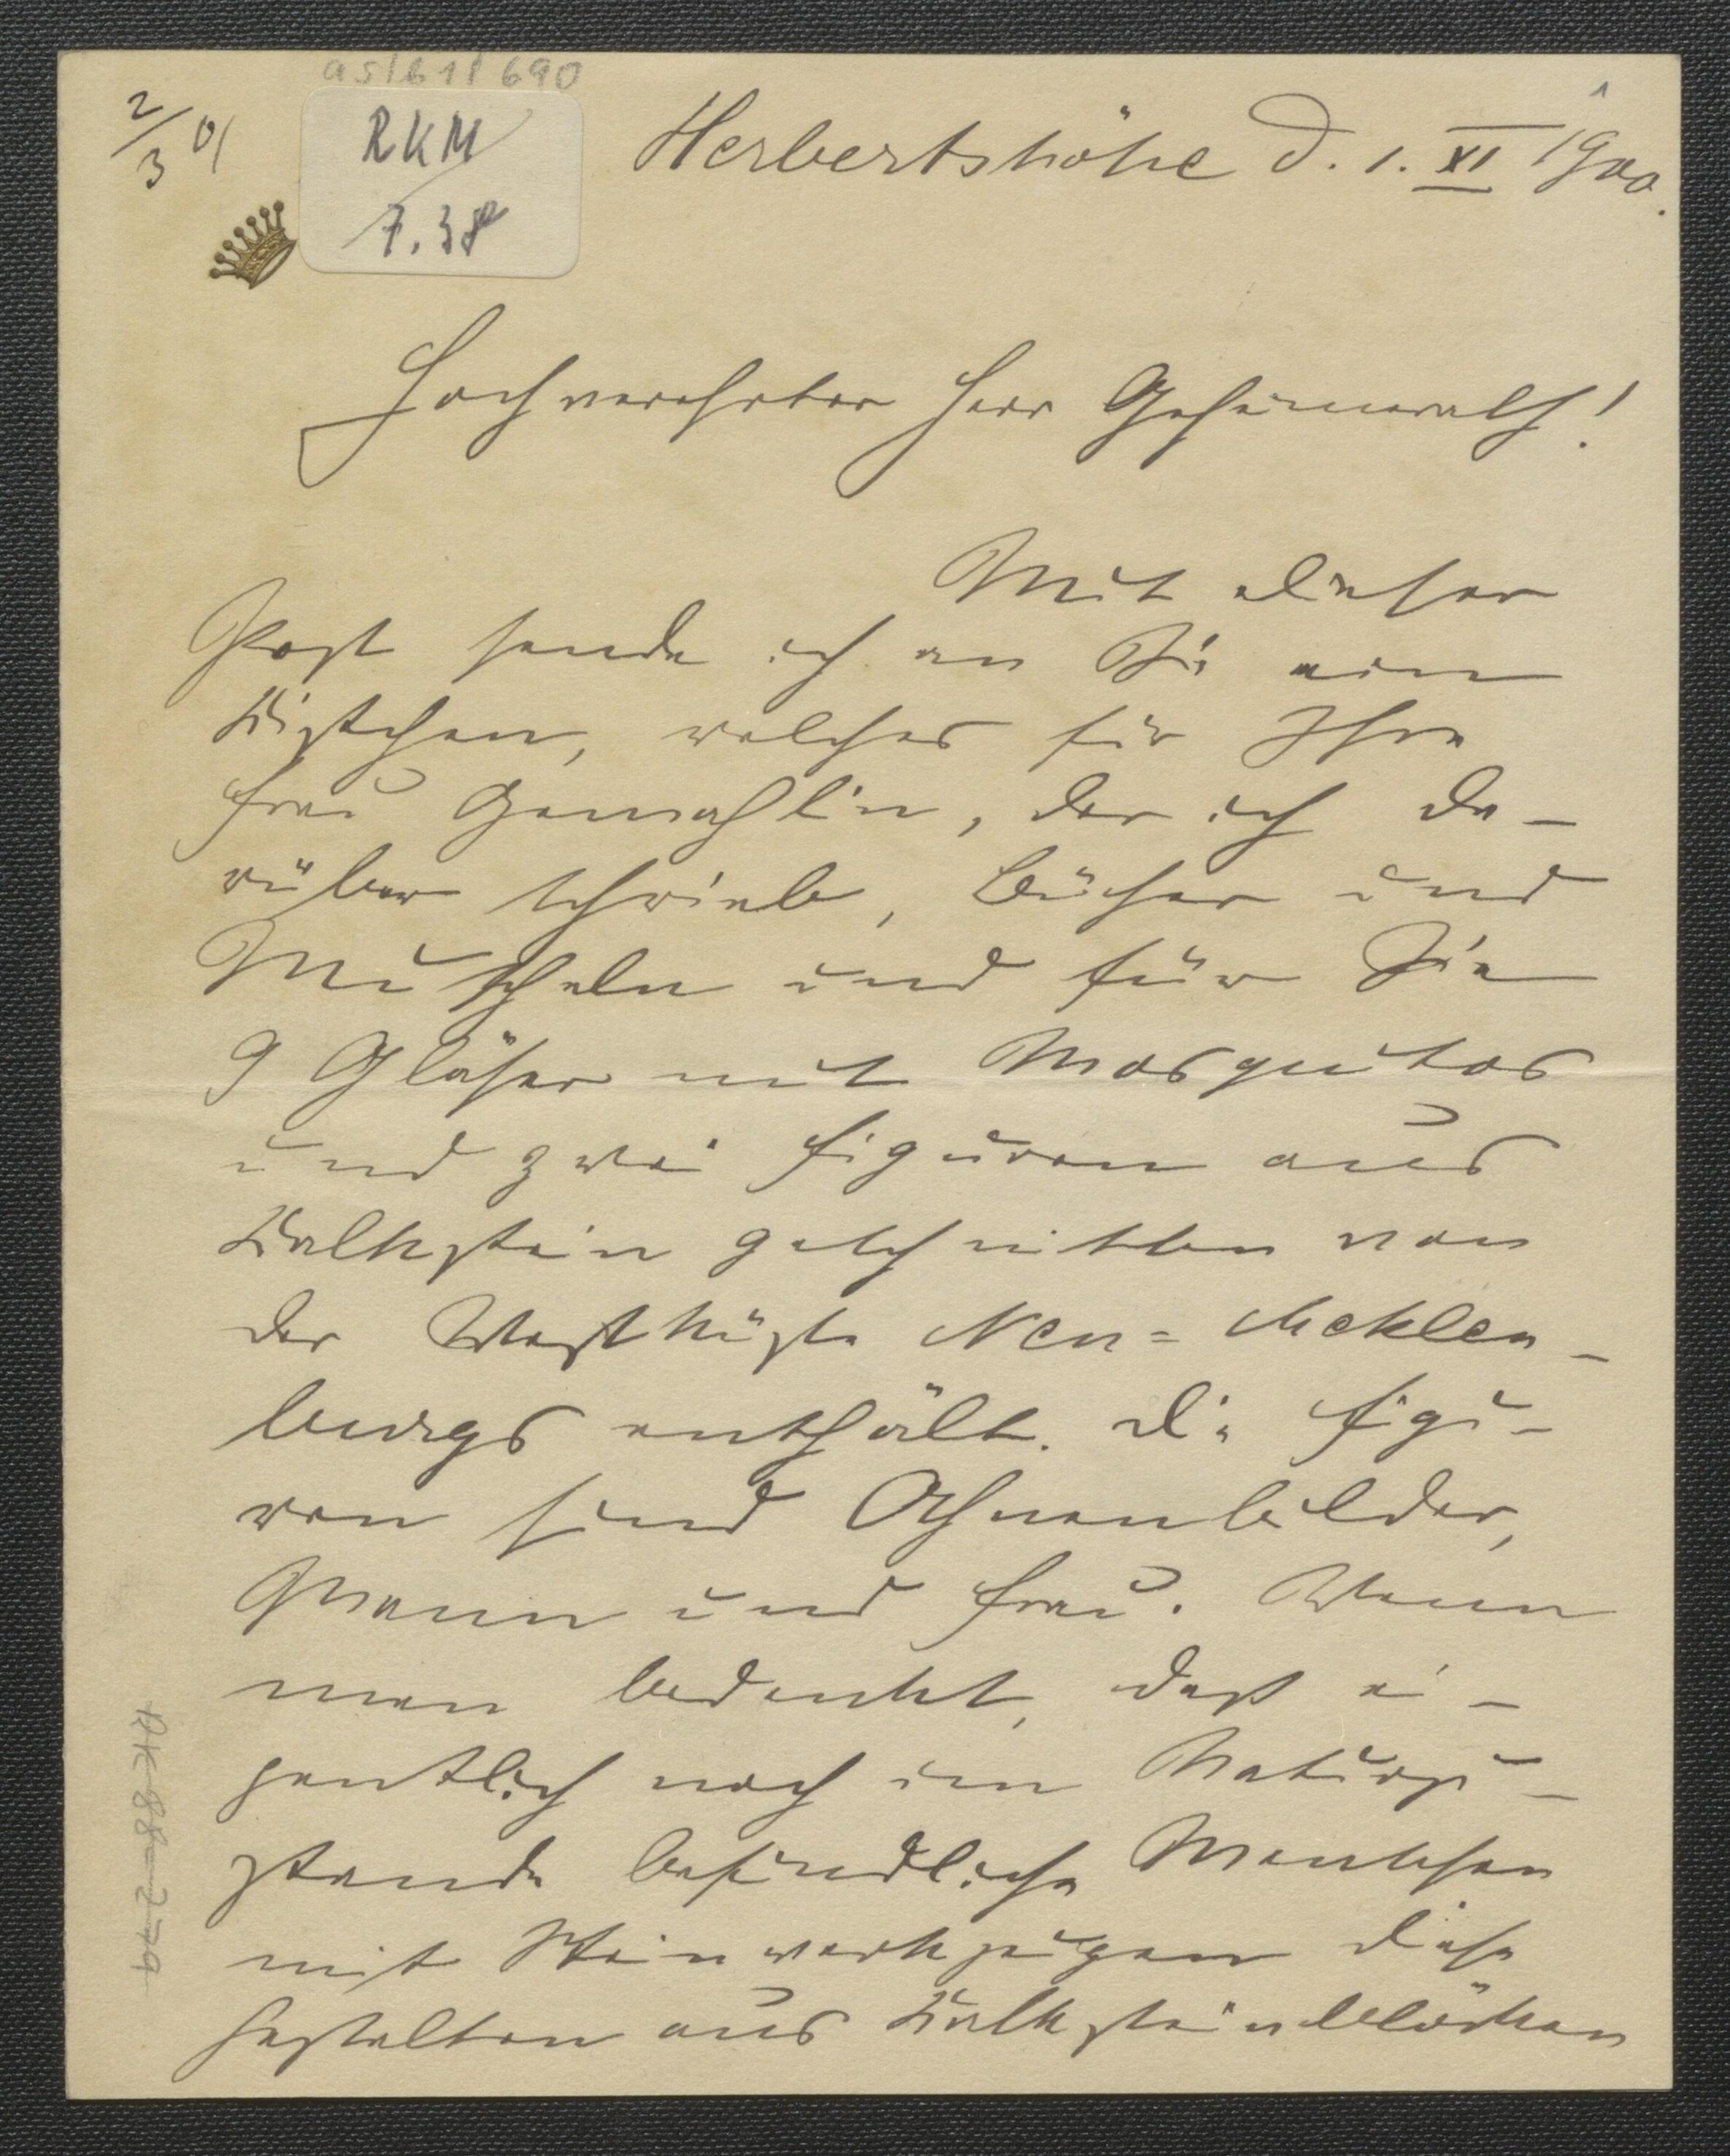 as/b1/ 690
2/3 01
RKM
7.38
Herbertshöhe d. 1. XI 1900.
Hochverehrter Herr Geheimrath!
Mit dieser
Post sende ich an Sie ein
Kistchen, welches für Ihre
Frau Gemahlin, der ich da-
rüber schrieb, Bücher und
Muscheln und für Sie
9 Gläser mit Mosquitos
und zwei Figuren aus
Kalkstein geschnitten von
der Westküste Neu=Meklen-
burgs enthält. Die Figu-
ren sind Ahnenbilder,
Mann und Frau. Wenn
man bedenkt, daß ei-
gentlich noch im Naturzu-
stande befindliche Menschen
mit Steinwerkzeugen diese
Gestalten aus Kalksteinblöcken
RK 88-2-79